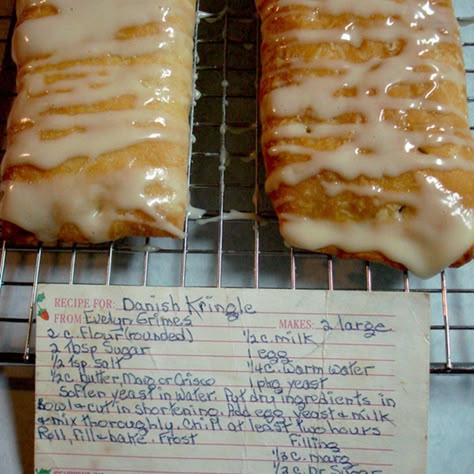 RECIPE FOR: Danish Kringle
FROM: Evelyn Grimes MAKES: 2 large
2 c. Flour (rounded) 1/2 c. milk
2 Tbsp Sugar 1 egg
1/2 tsp Salt 1/4 c. warm water
1/2 c. Butter, Marg or Crisco 1 pkg yeast
Soften yeast in water. Put dry ingredients in
bowl & cut in shortening. Add egg, yeast & milk
& mix thoroughly. Chill at least two hours
Roll, fill & bake. Frost
Filling
1/3 c. marg